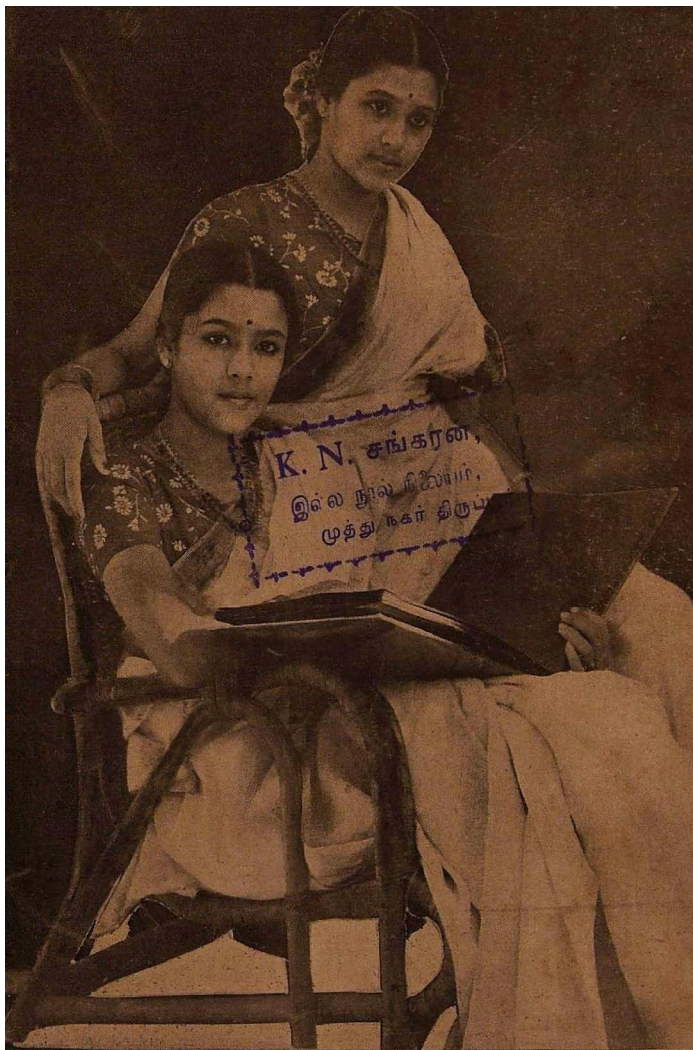 K. N. சங்கரன்,
இல்ல நூல் நிலையம்,
முத்து நகர்